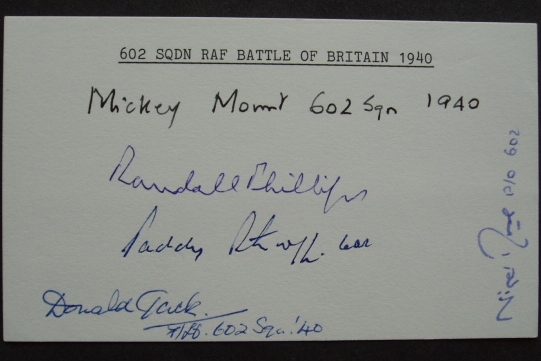 602 SQDN RAF BATTLE OF BRITAIN 1940
Mickey Mount 602 Sqn 1940
Randall Phillips
Paddy
Donald Jack.
602 Sqn. '40
Nigel Rose P/O 602